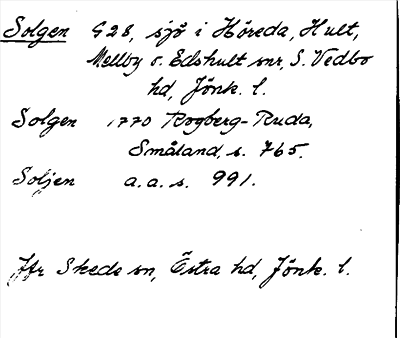 Solgen G28, sjö i Höreda, Hult,
Mellby o. Edshult snr, S. Vedbo
hd, Jönk. l.
Solgen 1770 Rogberg-Ruda,
Småland, s. 765.
Soljen a.a.s. 991.
Jfr Skede sn, Östra hd, Jönk. l.